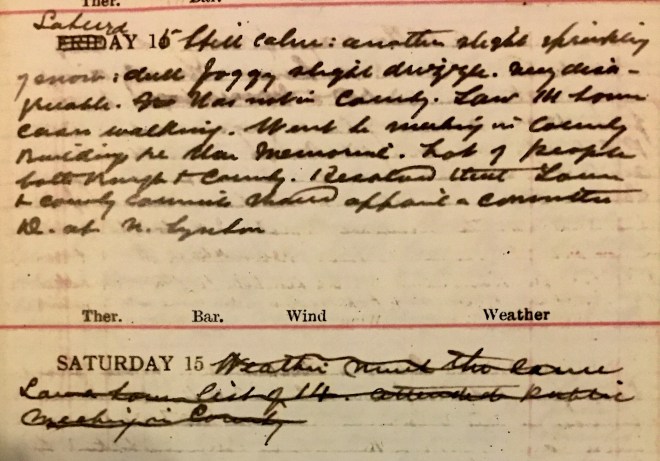 Ther. Bar.
Saturd
FRIDAY 15 Still calm: another slight sprinkling
of snow: dull foggy slight drizzle. Very disa-
greable. Was not in County. Law 14 hour
cases walking. Went to meeting in County
Building re War Memorial. Lot of people
both Burgh & County. Resolved that Town
& County councils should appoint a committee
D. at N.
Ther. Bar. Wind Weather
SATURDAY 15 Weather much the same
list of 14. attended public
meeting in County